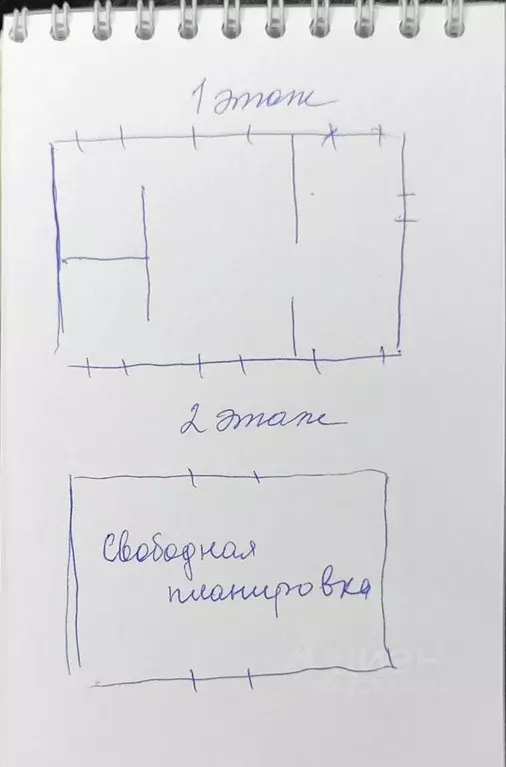 1 этаж
2 этаж
Свободная
планировка